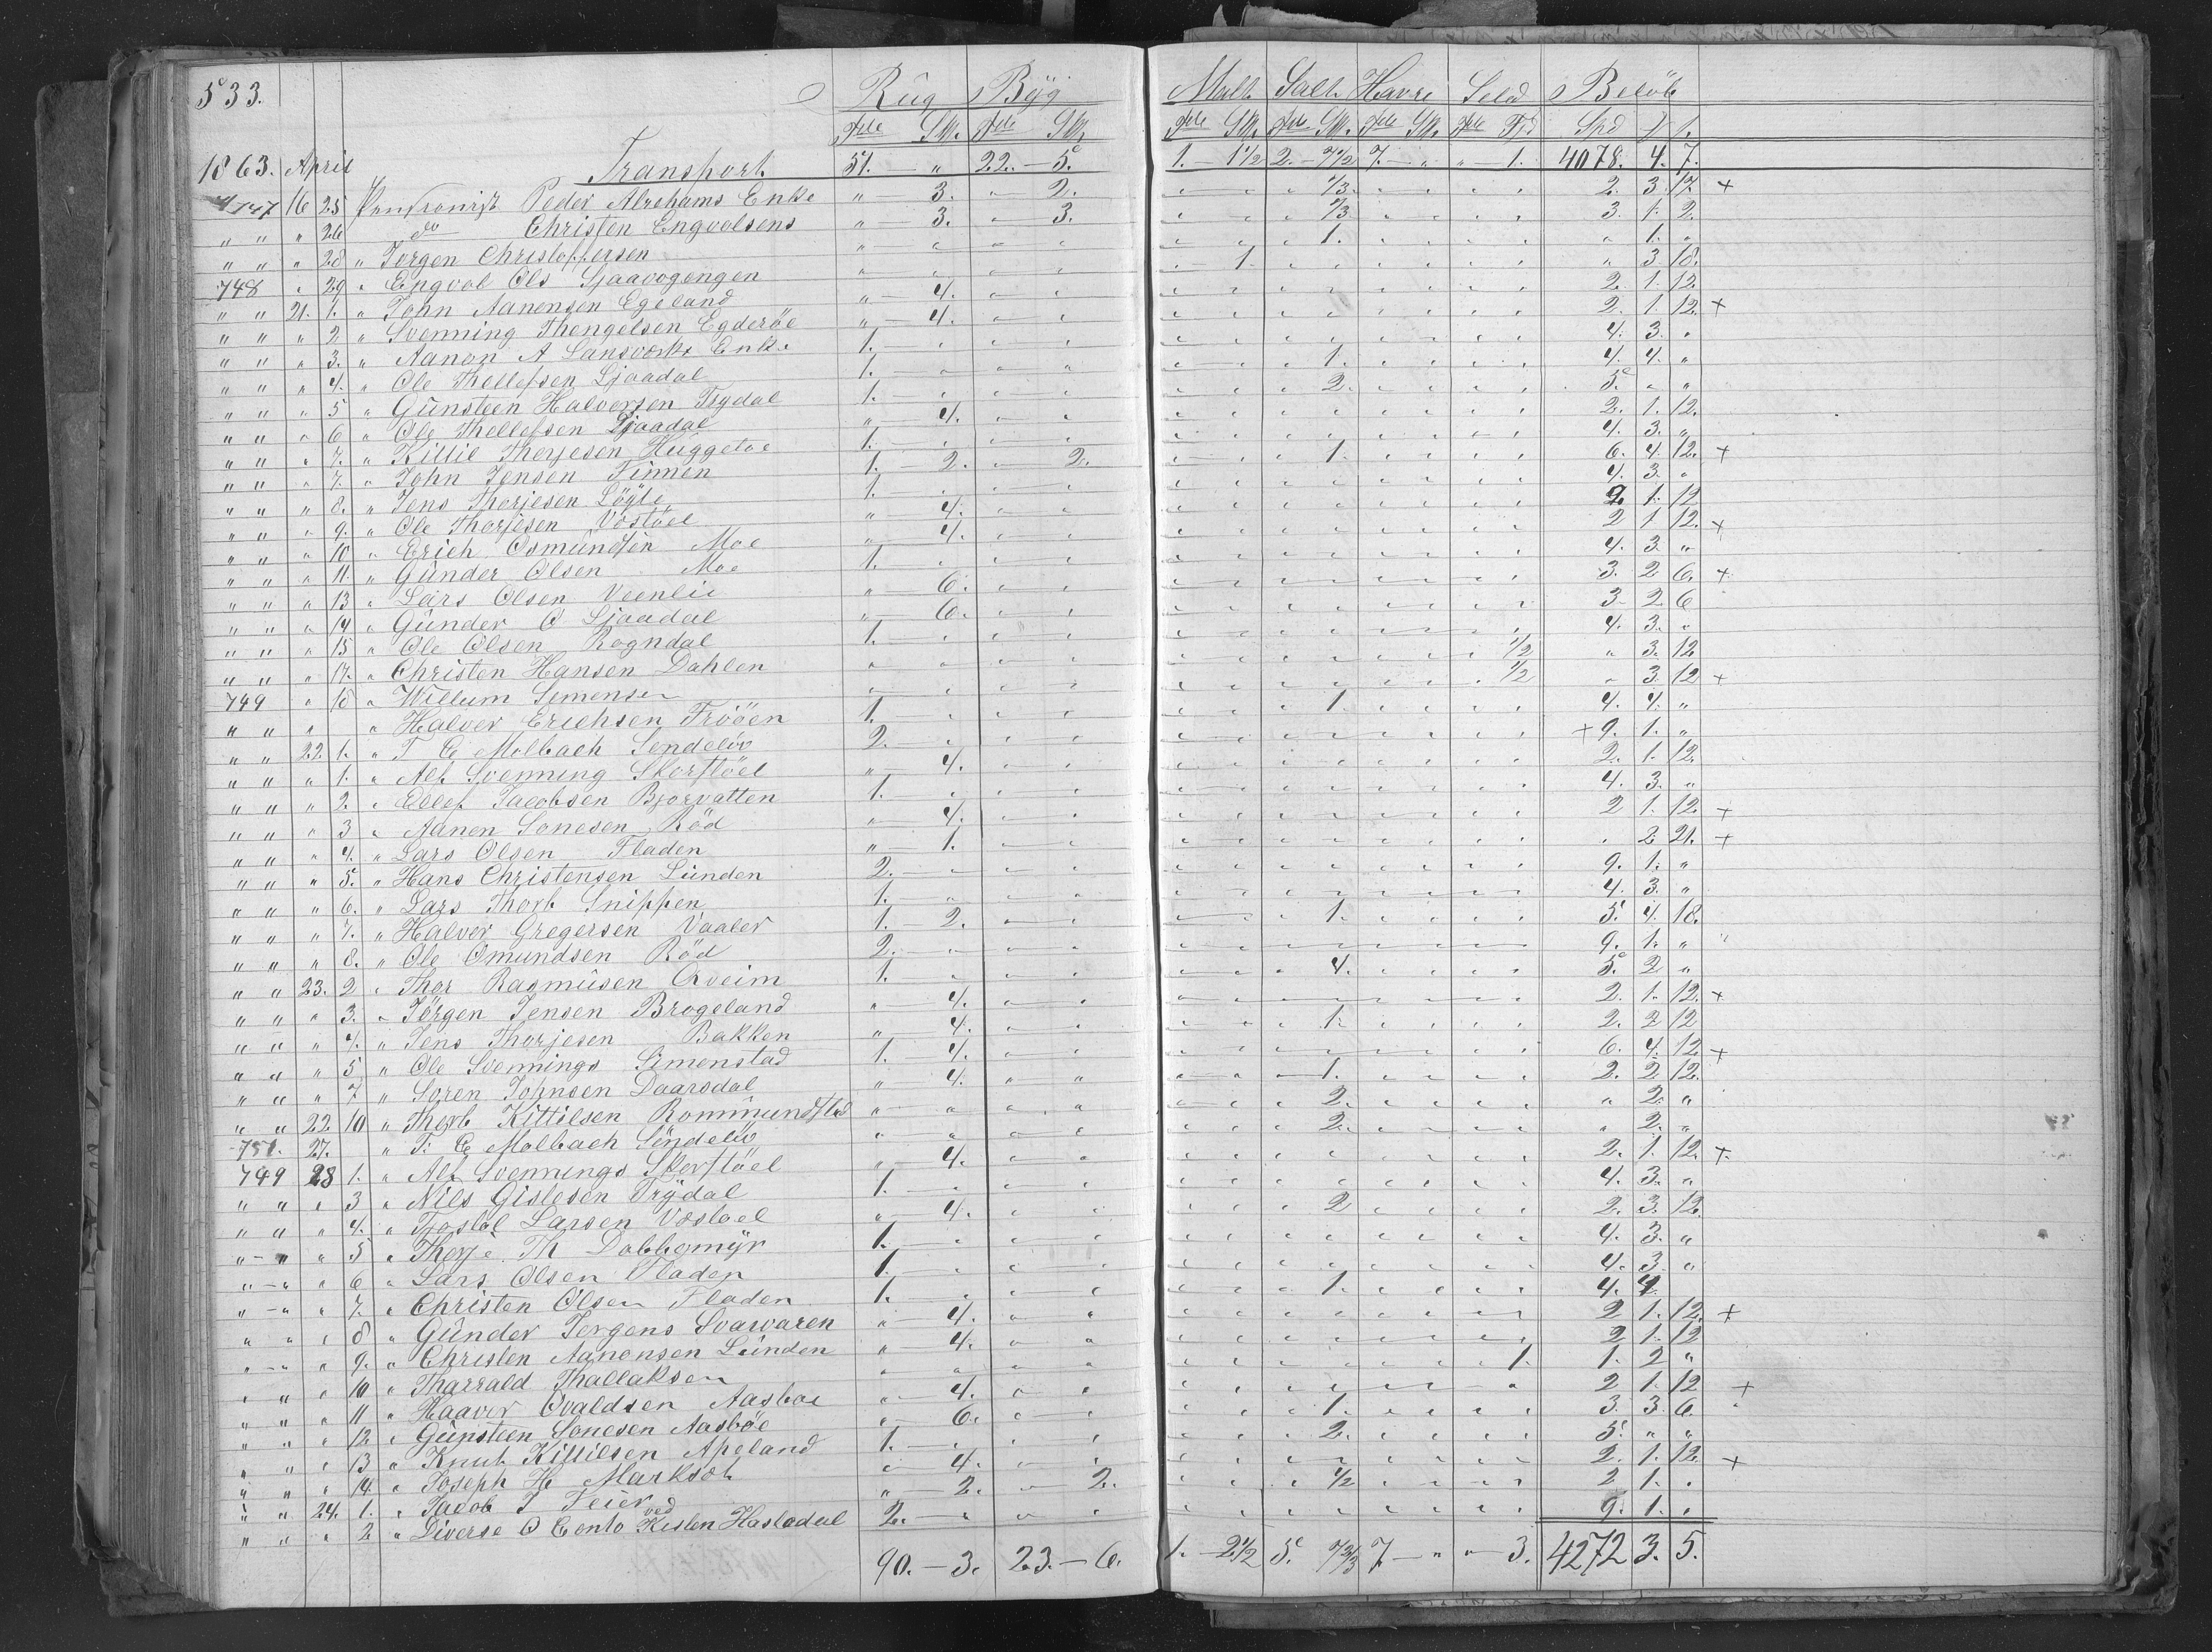 533. Rug Byg Malt Salt Havre Sild Beløb
Tdr Sk. Tdr Sk. Tdr Sk. Tdr Sk. Tdr Sk. Tdr Fjd Spd
1863. April Transport 51. " 22. - 5. 1. - 1 1/2 2. - 7 1/2 7. - " " - 1. 4078. 4. 7.
747 16 25 Pensionist Peder Abrahams Enke " 3. " 2. 1/3. 2. 3. 17. +
" " " 26 do Christen Engvolsens " 3. " 3. 1/3 3. 1. 2.
" " " 28 " Jorgen Christophersen 1. " 1. "
748 " 29 " Engvol Ols Sjaavogengen 1. " 3. 18.
" " 21. 1. " John Aanensen Egeland " 4. 2. 1. 12.
" " " 2 " Svenning Thengelsen Egderöe " 4. 2. 1. 12. +
" " " 3. " Aanon A Lansverks Enke 1. 4. 3. "
" " " 4. " Ole Thellefsen Ljaadal 1. 1. 4. 4. "
" " " 5 " Günsteen Halvorsen Trydal 1. 2. 5. " "
" " " 6 " Ole Thellefsen Ljaadal " 4. 2. 1. 12.
" " " 7. " Killil Therjesen Huggetoe 1. 4. 3. "
" " " 7. " John Jensen Finnen 1. - 2. " 2. 1. 6. 4. 12. +
" " " 8. " Jens Therjesen Löyte 1. 4. 3. "
" " " 9. " Ole Thorjesen Vöstöel " 4. 2. 1. 12
" " " 10 " Erich Osmundsen Moe " 4. 2 1 12. +
" " " 11. " Günder Olsen Moe 1. 4. 3. "
" " " 13 " Lars Olsen Veenlie " 6. 3. 2 6. +
" " " 14 " Günder O Ljaadal " 6. 3 2 6
" " " 15 " Ole Olsen Rogndal 1. 4. 3. "
" " " 17. " Christen Hansen Dahlen 1/2 " 3. 12
749 " 18 " Willum Semensen 1/2 " 3. 12 +
" " " " Halver Erichsen Tröoen 1. 1. 4. 4. "
" " 22. 1. " T E Molbach Sendeløv 2. + 9. 1. "
" " " 1. " Alf Svenning Skorstöel " 4. 2. 1. 12.
" " " 2. " Ellef Jacobsen Bjorvatten 1. 4. 3. "
" " " 3 " Aanen Sonesen Röd " 4. 2 1. 12. +
" " " 4. " Lars Olsen Fladen " 1. " 2 21. +
" " " 5. " Hans Christensen Lunden 2. 9. 1. "
" " " 6. " Lars Thorb Snippen 1. 4. 3. "
" " " 7. " Halver Gregersen Vaaler 1. - 2. 1. 5. 4. 18.
" " " 8. " Ole Omundsen Röd 2. 9. 1. "
" " 23. 2 " Thor Rasmusen Qveim 1. 4. 5. 2 "
" " " 3. " Jörgen Jensen Brogeland " 4. 2. 1. 12. +
" " " 4. " Jens Thorjesen Bakken " 4. 1. 2. 2 12
" " " 5 " Ole Svennings Simenstad 1. 4. 6. 4. 12. +
" " " 7 " Soren Johnsen Daarsdal " 4. 1. 2. 2 12.
" " 22. 10 " Thorb Kittilsen Rommundstad 2. " 2. "
751. 27. " T. E Molbach Söndeløv 2. " 2. "
749 28 1. " Alf Svennings Skorstöel " 4. 2. 1. 12. +
" " " 3 " Nils Gislesen Trydal 1. 4. 3. "
" " " 4. " Tjostöl Larsen Vöstoel " 4. 2 2. 3. 12.
" " " 5 " Therje Th Dobbemyr 1. 4. 3. "
" " " 6 " Lars Olsen Fladen 1. 4. 3 "
" " " 7. " Christen Olsen Fladen 1. 1. 4. 4.
" " " 8 " Günder Jorgens Svarvaren " 4. 2 1. 12. +
" " " 9. " Christen Aanonsen Lünden " 4. 2 1. 12
" " " 10 " Tharrald Thallaksen 1. 1. 2 "
" " " 11 " Haaver Ovaldsen Aasboe " 4. 2 1. 12 +
" " " 12 " Günsteen Sonesen Aasböe " 6. 1. 3. 3. 6.
" " " 13 " Knut Killilsen Apeland 1. 2. 5. " "
" " " 14. " Joseph H Marksöt " 4. 2. 1. 12. +
" " 24. 1. " Jacob J Feier " 2. " 2. 1/2 2 1. "
" " " 2 " Diverse O Conto ved Kisten Hasladal 2. 9. 1. "
90. - 3. 23. - 6. 1. - 2 1/2 5. 7 2/3 7 - " " - 3. 4272 3. 5.